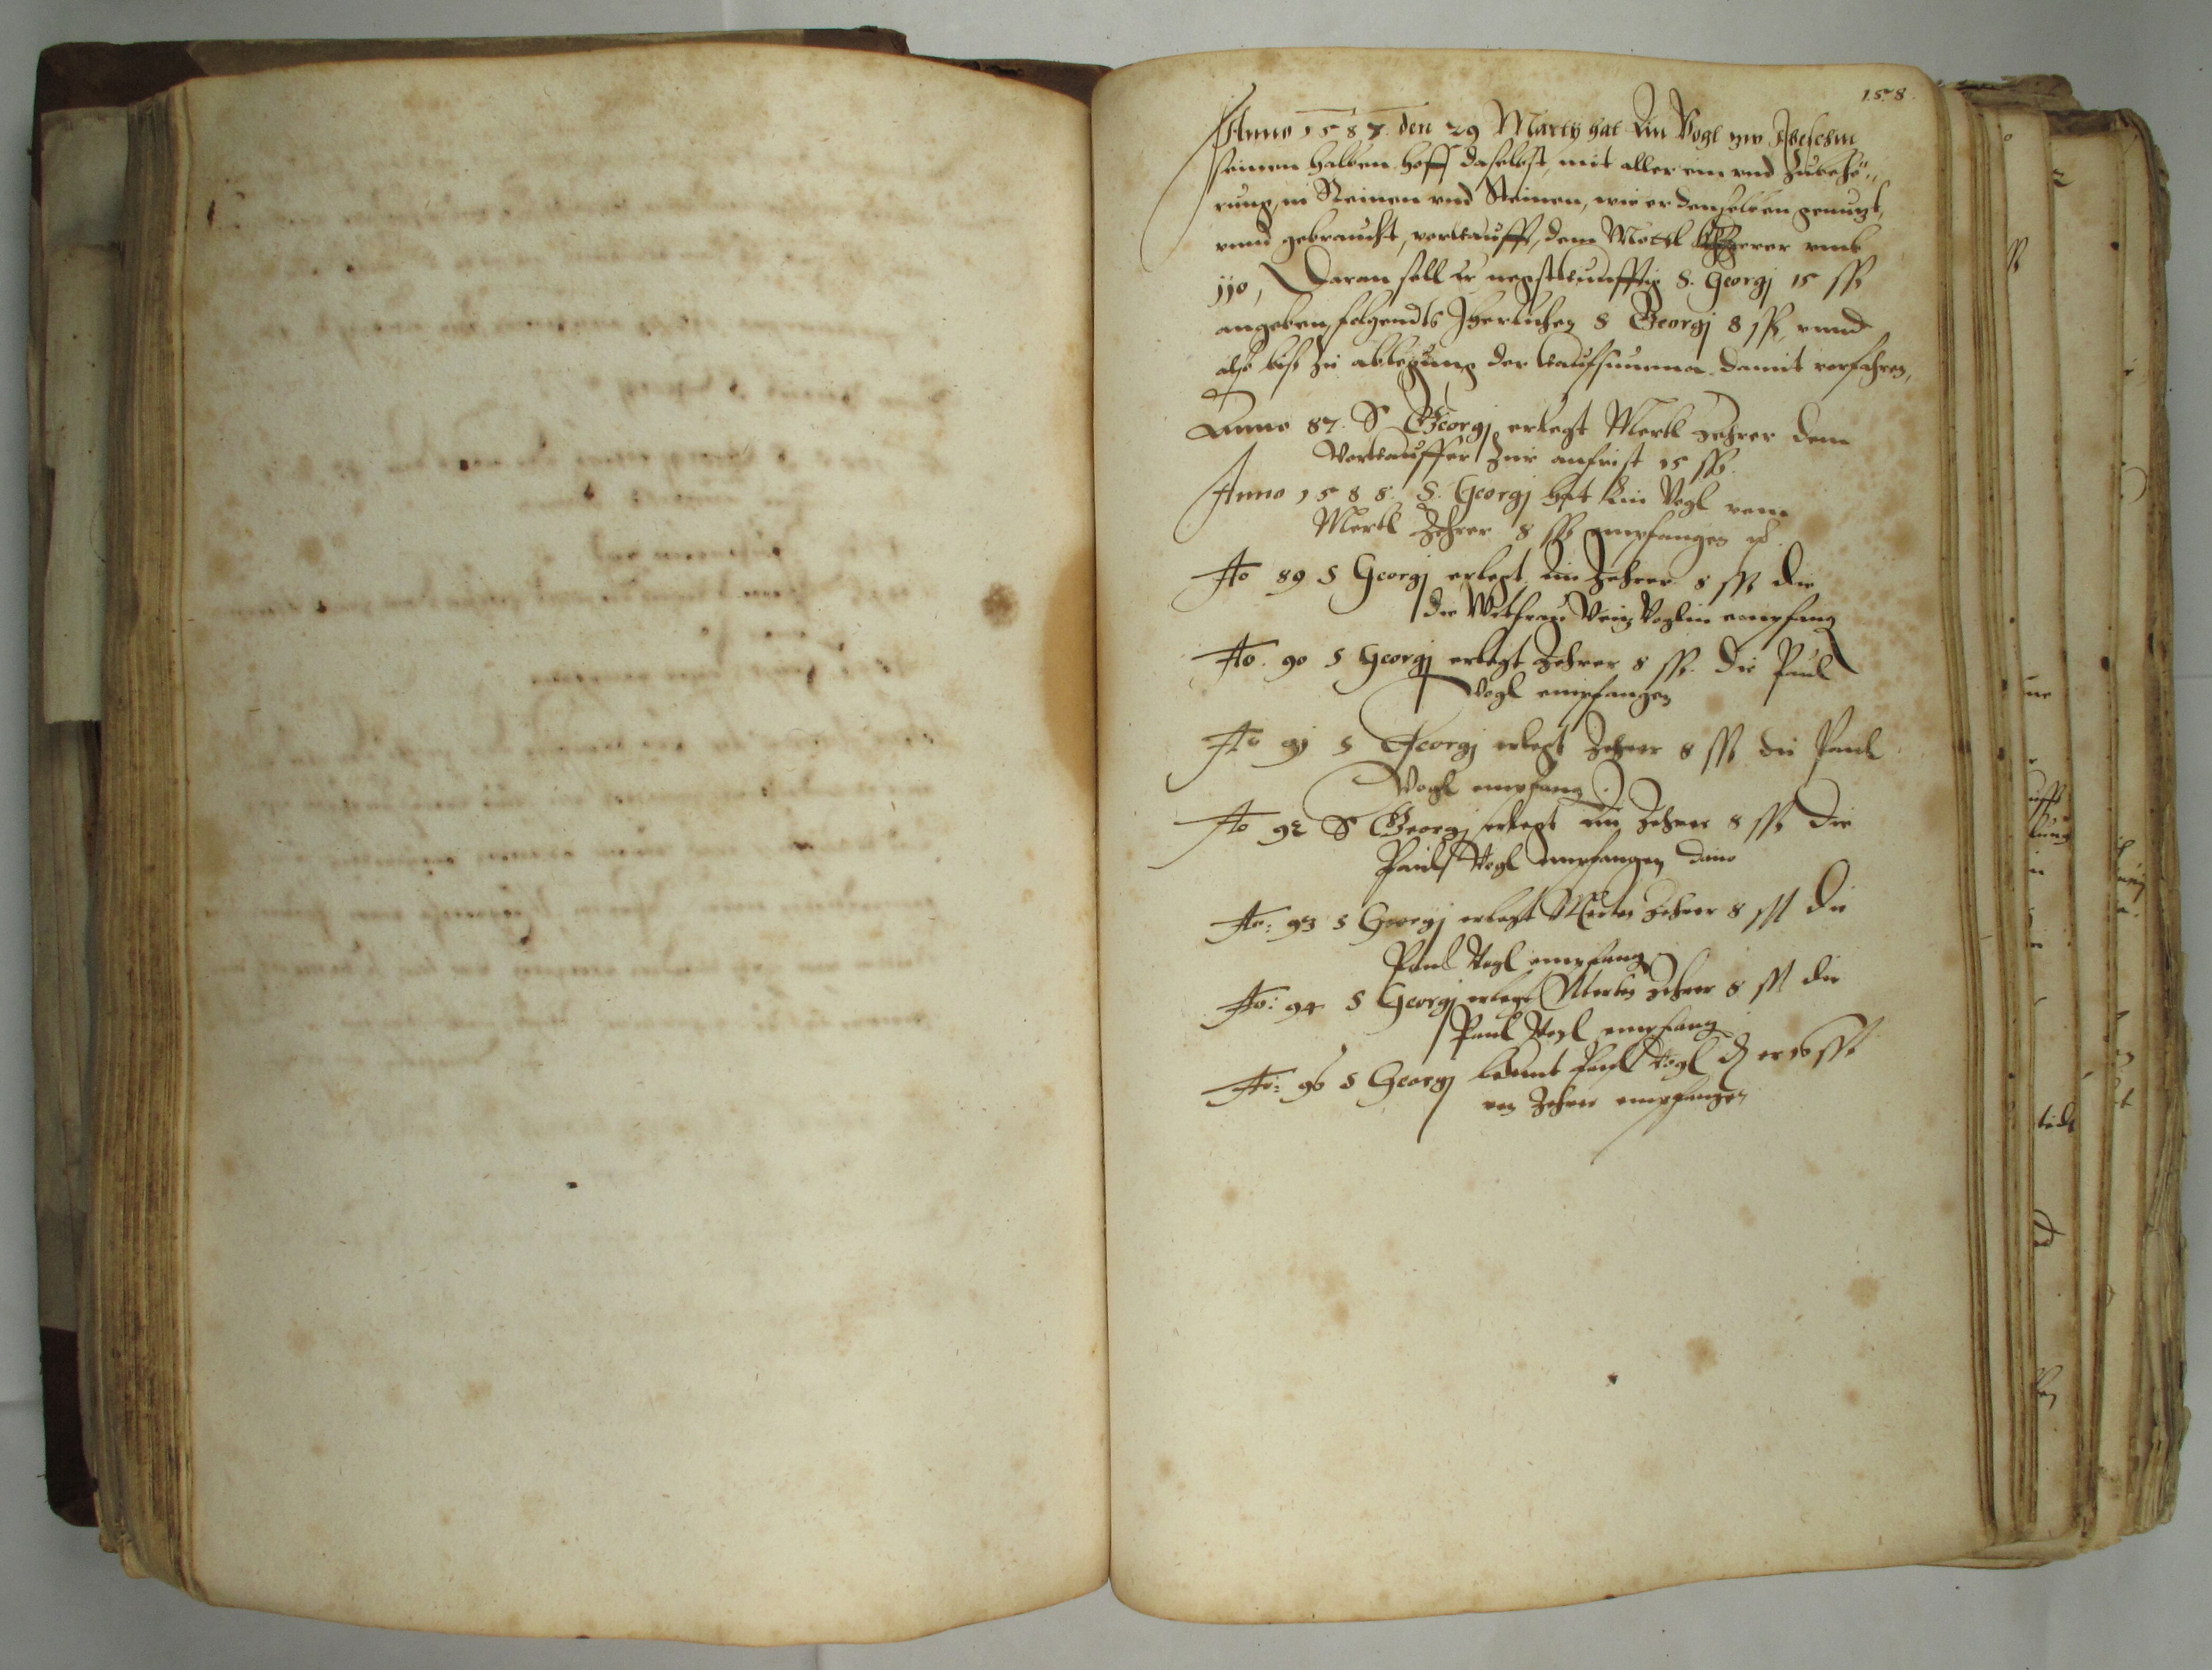 158
Anno 1587. den 29 Martÿ hat Lin Vogl zw
seinen halben hoff daselbst, mit aller ein vnd Zubehö„
rung, in Steinen vnd Reinen, wie er denselben genuzt,
vnnd gebraucht, vorkaufft, dem Mertl Zeherer vmb
jj0, Daran soll Er negstkunfftig S. Georgj 15 ß
angeben, folgendts Jherlichen S Georgj 8 ß, vnnd
also biß zu ablegung der kaufsumma damit verfahren,
Anno 87. S Georgj erlegt Mertl Zehrer dem
Vorkauffer Zur anfrist 15 ß.
Anno 1588. S. Georgj hat Lin Vogl vom
Mertl Zehrer 8 ß empfangen
Ao 89 S Georgj erlegt Zehrer 8 ß die
die Witfrau Voglin empfang
Ao. 90 S Georgj erlegt Zehrer 8 ß. die Paul
Vogl empfangen
Ao 91 S Georgj erlegt Zehrer 8 ß die Paul
Vogl empfang.
Ao 92 S Georgj erlegt Zehrer 8 ß die
Paul Vogl empfangen
Ao: 93 S Georgj erlegt Merten Zehrer 8 ß die
Paul Vogl empfang
Ao: 94 S Georgj erlegt Merten Zehrer 8 ß die
Paul Vogl empfang
Ao: 96 S Georgj bekent Paul Vogl dz er 16 ß
von Zehrer empfangen